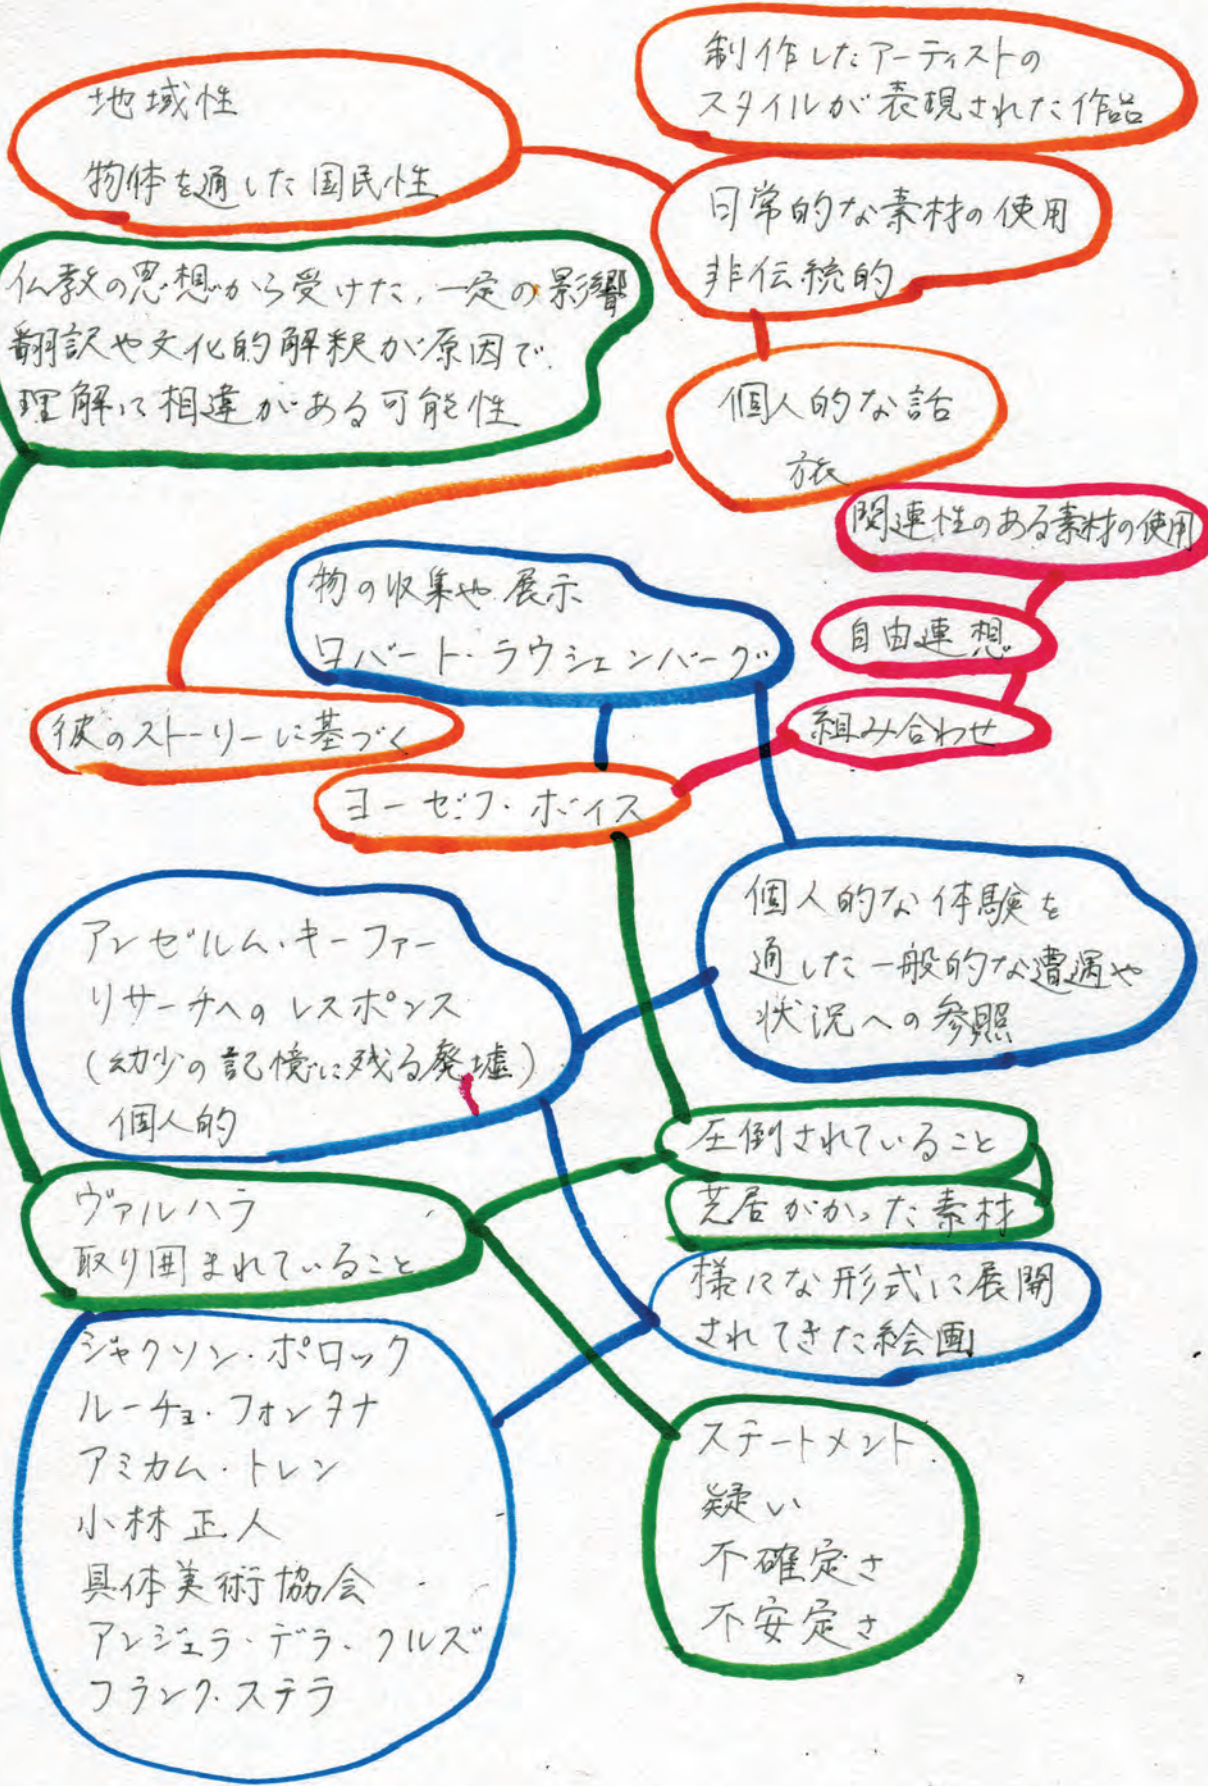 制作したアーティストの
スタイルが表現された作品
地域性
物体を通した国民性
日常的な素材の使用
非伝統的
仏教の思想から受けた、一定の影響
翻訳や文化的解釈が原因で
理解に相違がある可能性
個人的な話
旅
関連性のある素材の使用
自由連想
組み合わせ
物の収集や展示
ロバート・ラウシェンバーグ
彼のストーリーに基づく
ヨーゼフ・ボイス
個人的な体験を
通した一般的な遭遇や
状況への参照
アンゼルム・キーファー
リサーチへのレスポンス
(幼少の記憶に残る廃墟)
個人的
圧倒されていること
芝居がかった素材
ヴァルハラ
取り囲まれていること
様々な形式に展開
されてきた絵画
ジャクソン・ポロック
ルーチョ・フォンタナ
アミカム・トレン
小林正人
具体美術協会
アンジェラ・デラ・クルズ
フランク・ステラ
ステートメント
疑い
不確定さ
不安定さ